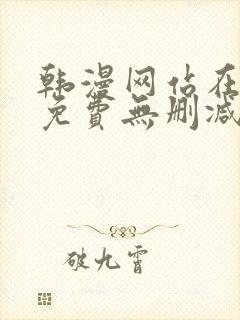 韩漫网站在
免費無删减
破九霄